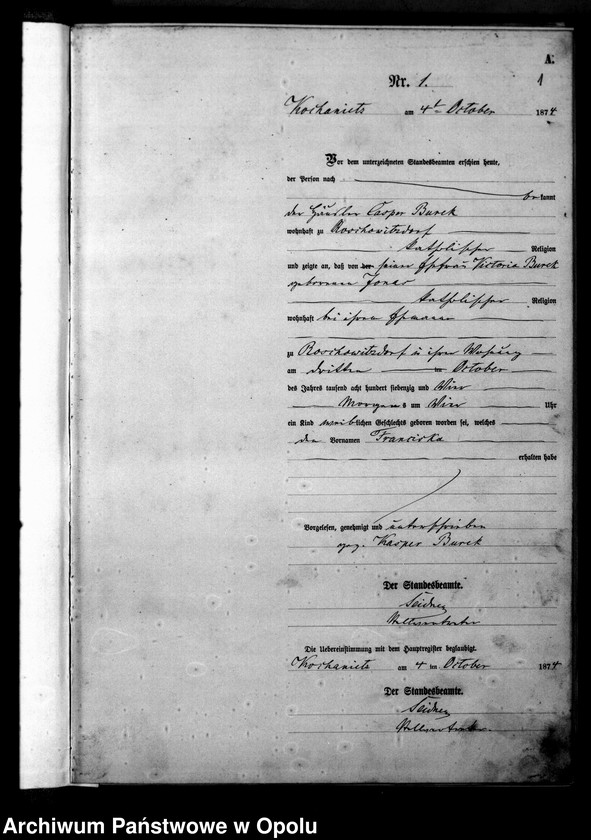 A.
Nr. 1. 1
Kochanietz am 4t October 1874
Vor dem unterzeichneten Standesbeamten erschien heute,
der Person nach
be kannt
der Häusler Casper Burek
wohnhaft zu Roschowitzdorf
katholischer Religion
und zeigte an, daß von der seiner Ehefrau Victoria Burek
geborenen Jonas
katholischer Religion
wohnhaft bei ihrem Ehemanne
zu Roschowitzdorf in ihrer Wohnung
am dritten im October
des Jahres tausend acht hundert siebenzig und Vier
Morgens um Vier Uhr
ein Kind weiblichen Geschlechts geboren worden sei, welches
den Vornamen Franciska
erhalten habe
Vorgelesen, genehmigt und unterschrieben
gez. Kasper Burek
Der Standesbeamte.
Seidner
Die Uebereinstimmung mit dem Hauptregister beglaubigt.
Kochanietz am 4 ten October 1874
Der Standesbeamte.
Seidner
Archiwum Państwowe w Opolu